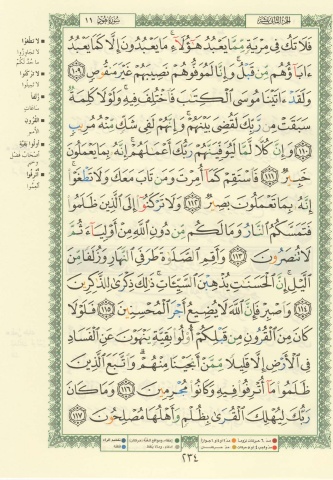 الجزء الثاني عشر
سورة هود ١١
فَلَا تَكُ فِي مِرْيَةٍ مِّمَّا يَعْبُدُ هَٰٓؤُلَآءِ مَا يَعْبُدُونَ إِلَّا كَمَا يَعْبُدُ
ءَابَآؤُهُم مِّن قَبْلُ وَإِنَّا لَمُوَفُّوهُمْ نَصِيبَهُمْ غَيْرَ مَنقُوصٍ ١٠٩
وَلَقَدْ ءَاتَيْنَا مُوسَى ٱلْكِتَٰبَ فَٱخْتُلِفَ فِيهِ وَلَوْلَا كَلِمَةٌ
سَبَقَتْ مِن رَّبِّكَ لَقُضِيَ بَيْنَهُمْ وَإِنَّهُمْ لَفِي شَكٍّ مِّنْهُ مُرِيبٍ
١١٠ وَإِنَّ كُلًّا لَّمَّا لَيُوَفِّيَنَّهُمْ رَبُّكَ أَعْمَٰلَهُمْ إِنَّهُۥ بِمَا يَعْمَلُونَ
خَبِيرٌ ١١١ فَٱسْتَقِمْ كَمَآ أُمِرْتَ وَمَن تَابَ مَعَكَ وَلَا تَطْغَوْا۟
إِنَّهُۥ بِمَا تَعْمَلُونَ بَصِيرٌ ١١٢ وَلَا تَرْكَنُوٓا۟ إِلَى ٱلَّذِينَ ظَلَمُوا۟
فَتَمَسَّكُمُ ٱلنَّارُ وَمَا لَكُم مِّن دُونِ ٱللَّهِ مِنْ أَوْلِيَآءَ ثُمَّ
لَا تُنصَرُونَ ١١٣ وَأَقِمِ ٱلصَّلَوٰةَ طَرَفَيِ ٱلنَّهَارِ وَزُلَفًا مِّنَ
ٱلَّيْلِ إِنَّ ٱلْحَسَنَٰتِ يُذْهِبْنَ ٱلسَّيِّـَٔاتِ ذَٰلِكَ ذِكْرَىٰ لِلذَّٰكِرِينَ
١١٤ وَٱصْبِرْ فَإِنَّ ٱللَّهَ لَا يُضِيعُ أَجْرَ ٱلْمُحْسِنِينَ ١١٥ فَلَوْلَا
كَانَ مِنَ ٱلْقُرُونِ مِن قَبْلِكُمْ أُو۟لُوا۟ بَقِيَّةٍ يَنْهَوْنَ عَنِ ٱلْفَسَادِ
فِي ٱلْأَرْضِ إِلَّا قَلِيلًا مِّمَّنْ أَنجَيْنَا مِنْهُمْ وَٱتَّبَعَ ٱلَّذِينَ
ظَلَمُوا۟ مَآ أُتْرِفُوا۟ فِيهِ وَكَانُوا۟ مُجْرِمِينَ ١١٦ وَمَا كَانَ
رَبُّكَ لِيُهْلِكَ ٱلْقُرَىٰ بِظُلْمٍ وَأَهْلُهَا مُصْلِحُونَ ١١٧
لا تطغوا
لا تركنوا
زلفا
ساعات
القرون
الأمم
أولوا بقية
أترفوا
٢٣٤